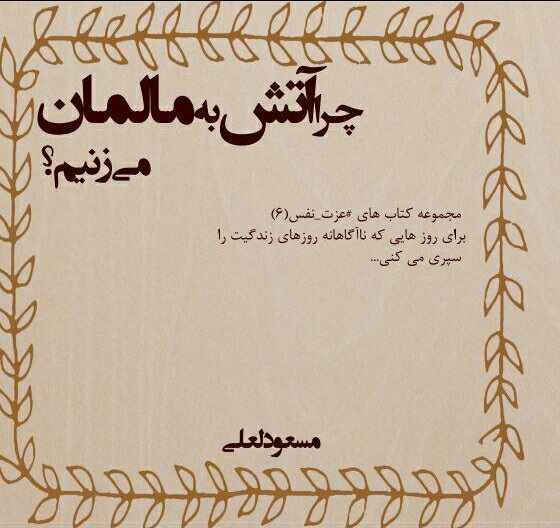 چرا آتش به مالمان
می‌زنیم؟
مجموعه کتاب های #عزت_نفس(۶)
برای روز هایی که ناآگاهانه روزهای زندگیت را
سپری می کنی...
مسعود لعلی